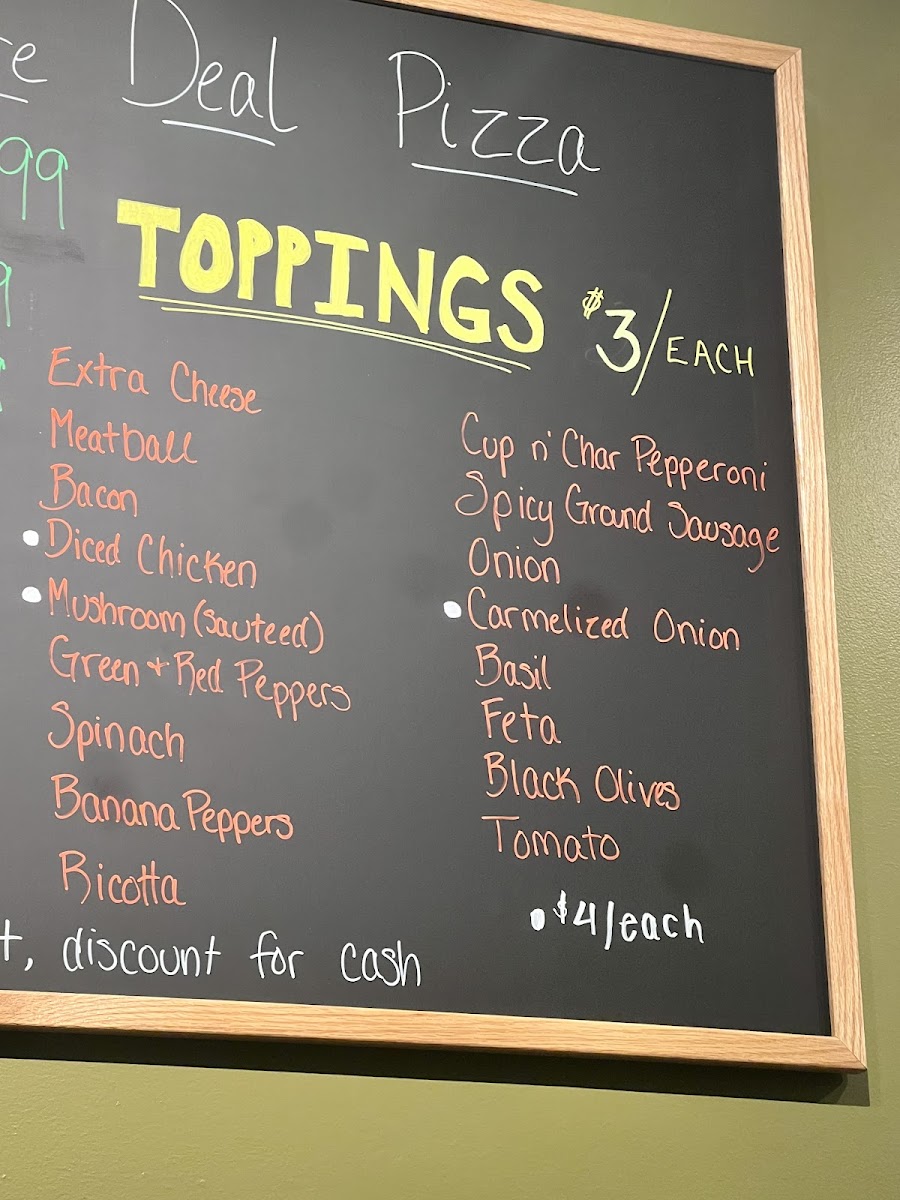 Deal Pizza
99
9
TOPPINGS $3/EACH
Extra Cheese
Meatball
Bacon
• Diced Chicken
• Mushroom (sauteed)
Green + Red Peppers
Spinach
Banana Peppers
Ricotta
Cup n' Char Pepperoni
Spicy Ground Sausage
Onion
• Carmelized Onion
Basil
Feta
Black Olives
Tomato
• $4/each
t, discount for cash